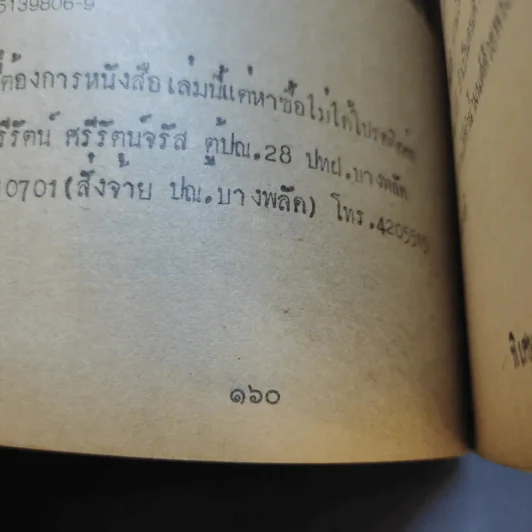 5139806-9
ต้องการหนังสือเล่มนี้แต่หาซื้อไม่ได้โปรดติดต่อ
รีรัตน์ ศรีรัตน์จรัส ตู้ปณ.28 ปทฝ.บางพลัด
0701(สั่งจ่าย ปณ.บางพลัด) โทร.4205515
๑๖๐